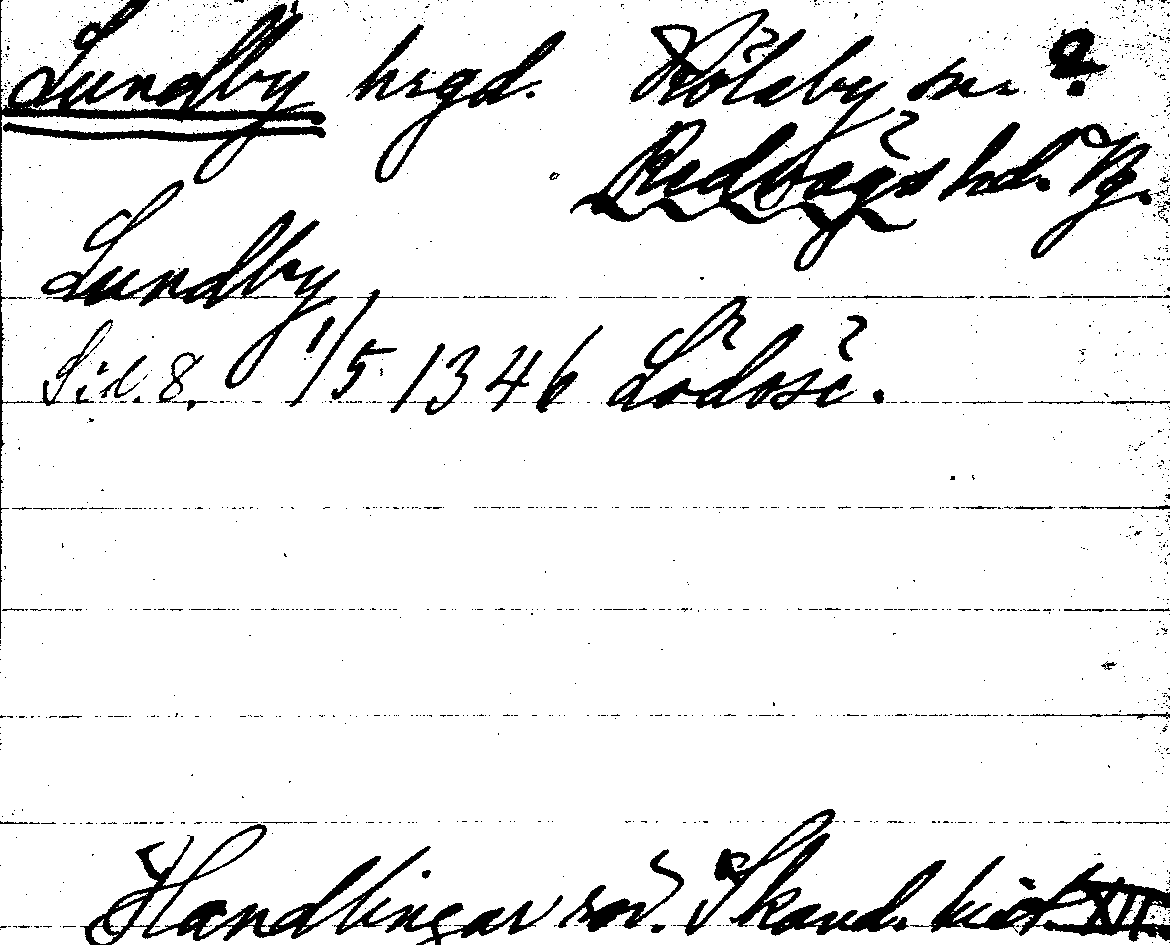 Lundby hrgd. Kölaby sn. ?
Redvägs hd. Vg.
Lundby
Sid. 8. 1/5 1346 Lödöse.
Handlingar rör. Skand. hist. XII.